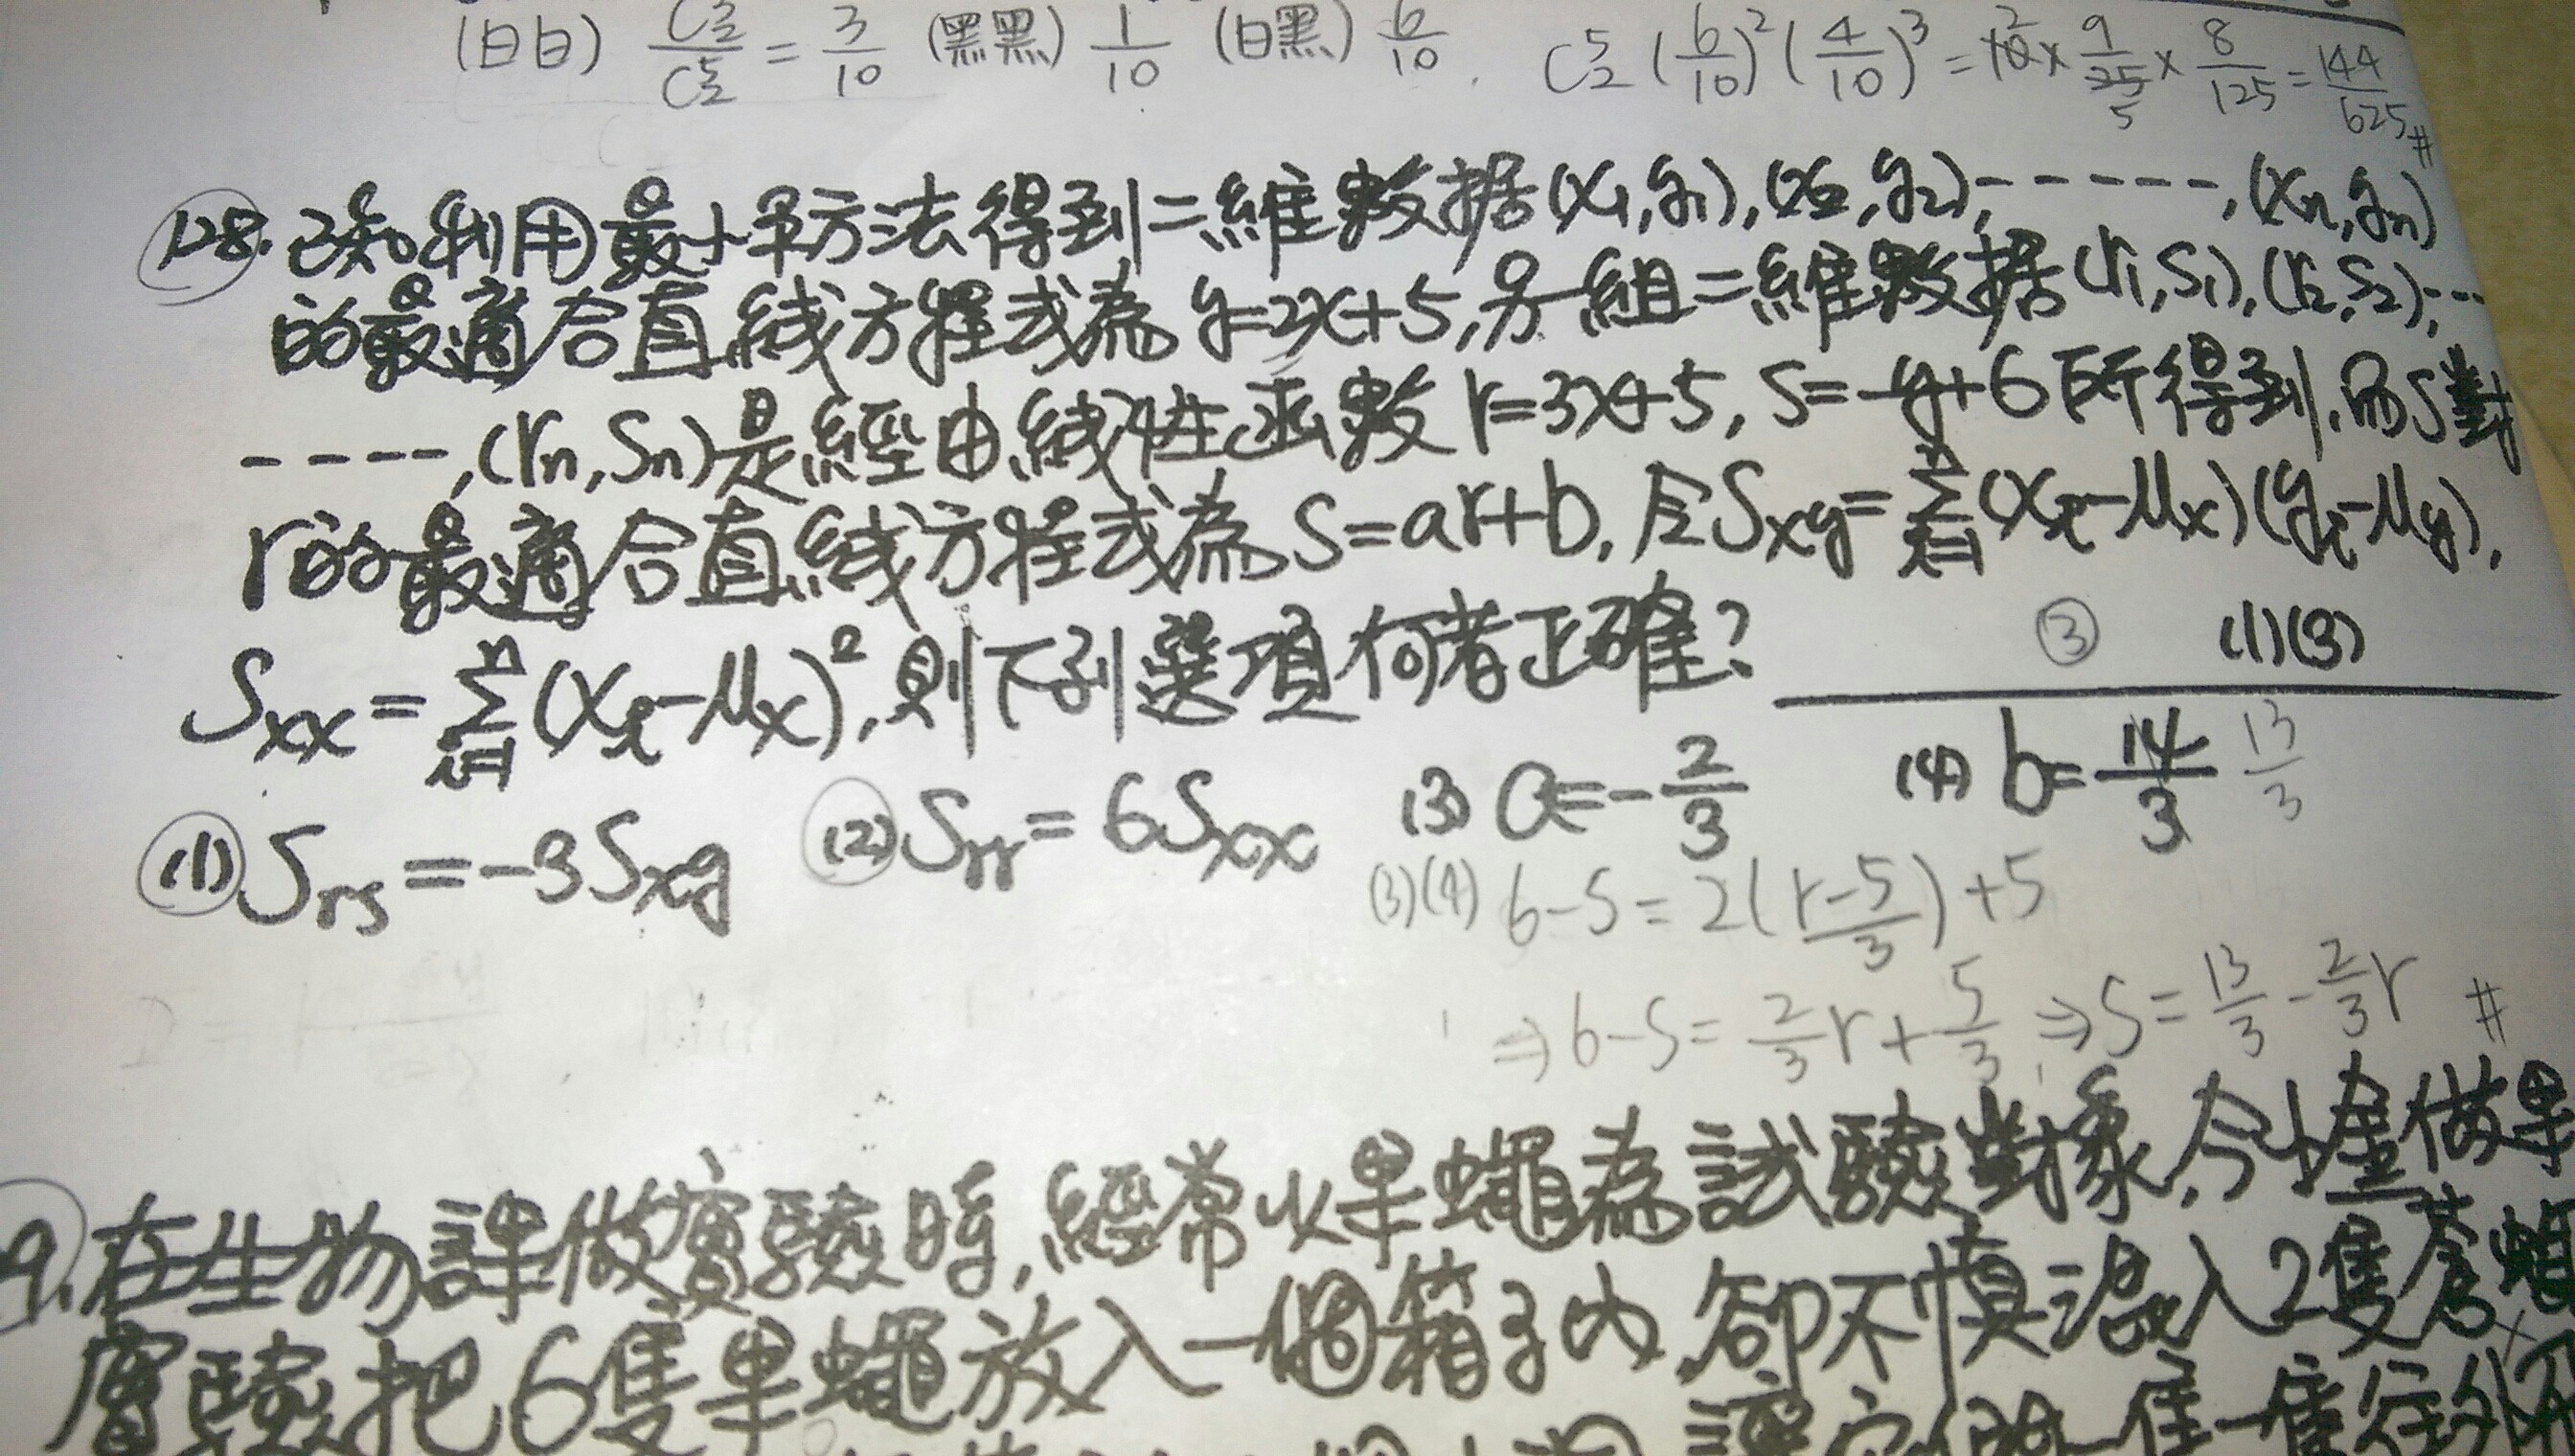 (白白) C³₂/C⁵₂ = 3/10 (黑黑) 1/10 (白黑) 6/10. C⁵₂(6/10)²(4/10)³ = 10 2 × 9/25 5 × 8/125 = 144/625 #
128. 已知利用最小平方法得到二維數据(x₁,y₁),(x₂,y₂),------,(xₙ,yₙ)
的最適合直線方程式為 y=2x+5,另一組二維數据(r₁,s₁),(r₂,s₂),...
----,(rₙ,sₙ)是經由線性函數 r=3x+5, s=-y+6所得到,而s對
r的最適合直線方程式為 s=ar+b, 令Sxy=Σⁿᵢ₌₁(xᵢ-μx)(yᵢ-μy),
Sxx=Σⁿᵢ₌₁(xᵢ-μx)²,則下列選項何者正確? ③ (1)(3)
(1) Srs=-3Sxy (2) Srr=6Sxx (3) a=-2/3 (4) b=14/3 13/3
(3)(4) 6-s=2(r-5/3)+5
⇒6-s=2/3r+5/3 ⇒s=13/3-2/3r #
9.在生物課做實驗時,經常以果蠅為試驗對象,今小奎做果
實驗把6隻果蠅放入一個箱子內,卻不慎混入2隻蒼蠅
讓它們一隻一隻往外